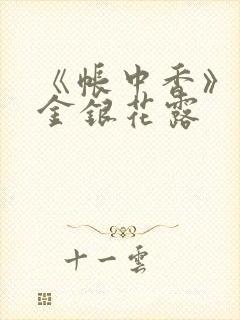 《帳中香》
金銀花露
十一雲